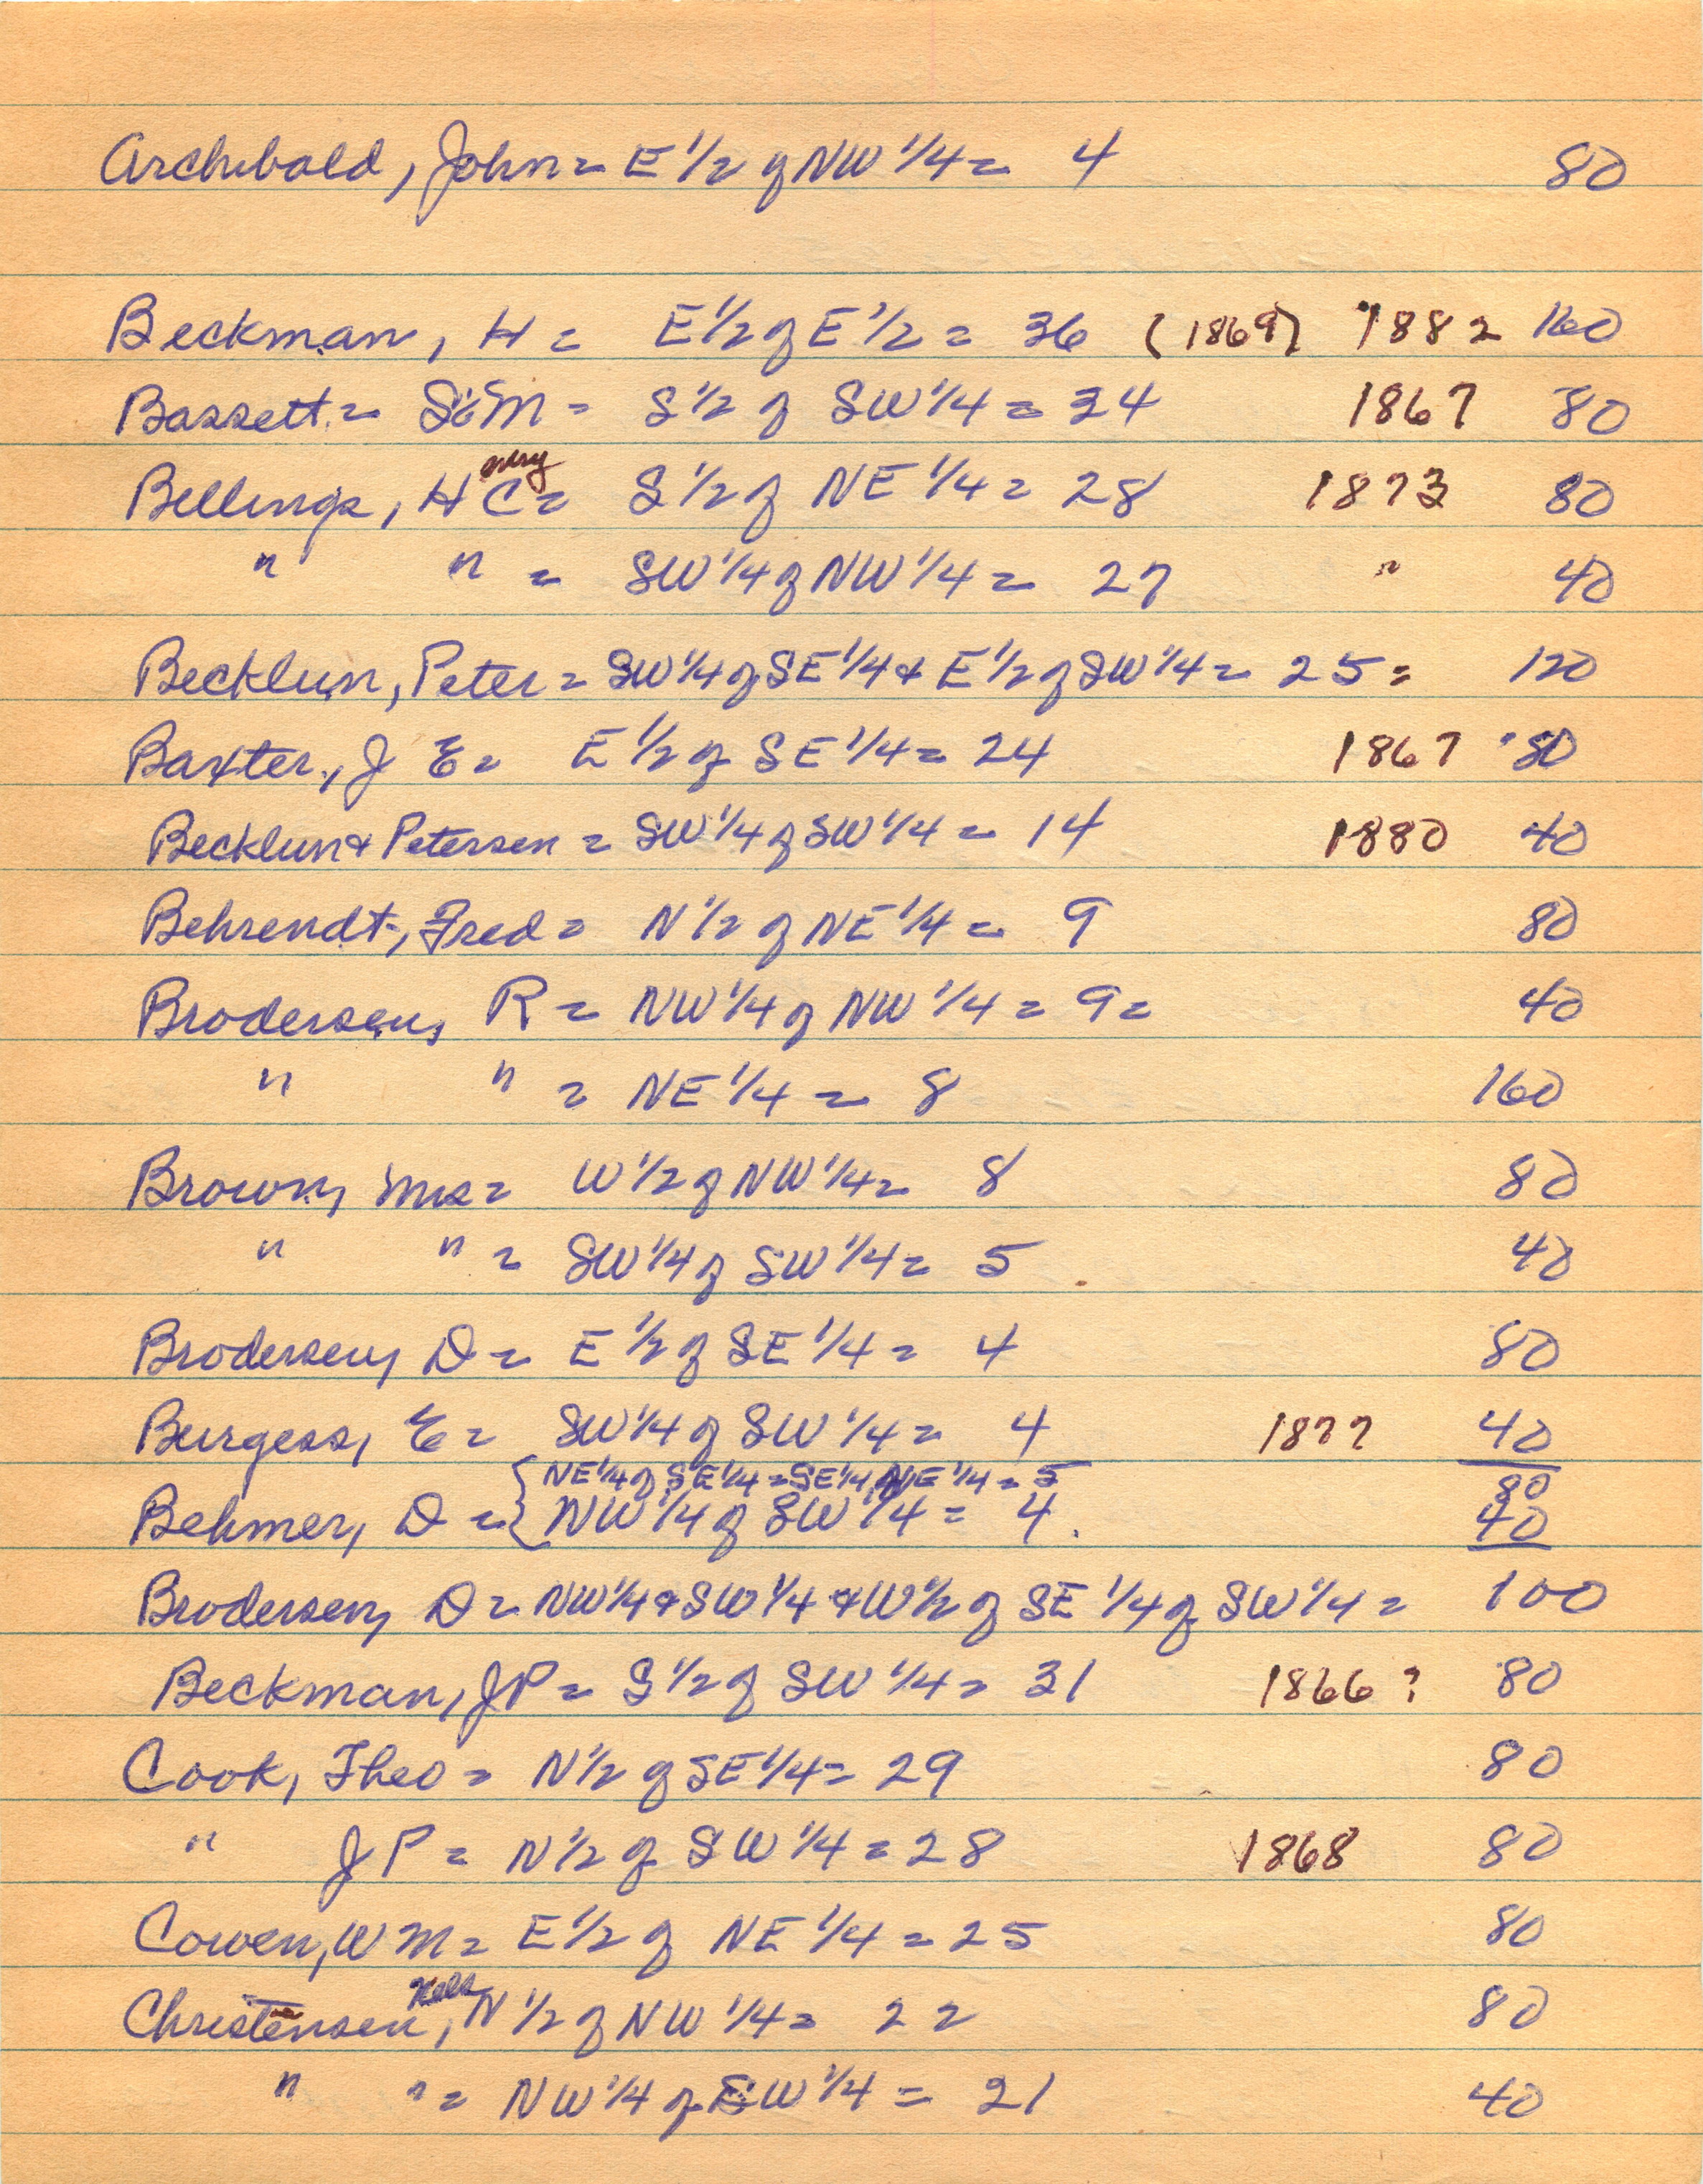 Archibald, John = E 1/2 of NW 1/4 = 4 80
Beckman, H = E 1/2 of E 1/2 = 36 (1869) 1882 160
Bassett = S & M = S 1/2 of SW 1/4 = 24 1867 80
enry
Bellings, H C = S 1/2 of NE 1/4 = 28 1873 80
" " = SW 1/4 of NW 1/4 = 27 " 40
Becklun, Peter = SW 1/4 of SE 1/4 & E 1/2 of SW 1/4 = 25 = 120
Baxter, J E = E 1/2 of SE 1/4 = 24 1867 80
Becklun & Petersen = SW 1/4 of SW 1/4 = 14 1880 40
Behrendt, Fred = N 1/2 of NE 1/4 = 9 80
Brodersen, R = NW 1/4 of NW 1/4 = 9 = 40
" " = NE 1/4 = 8 160
Brown, Mrs = W 1/2 of NW 1/4 = 8 80
" " = SW 1/4 of SW 1/4 = 5 40
Brodersen, D = E 1/2 of SE 1/4 = 4 80
Burgess, E = SW 1/4 of SW 1/4 = 4 1877 40
NE 1/4 of SE 1/4 = SE 1/4 of NE 1/4 = 5 80
Behmer, D = { NW 1/4 of SW 1/4 = 4. 40
Brodersen, D = NW 1/4 & SW 1/4 & W 1/2 of SE 1/4 of SW 1/4 = 100
Beckman, J P = S 1/2 of SW 1/4 = 31 1866 ? 80
Cook, Theo = N 1/2 of SE 1/4 = 29 80
" J P = N 1/2 of SW 1/4 = 28 1868 80
Cowen, W M = E 1/2 of NE 1/4 = 25 80
Nels
Christensen, N 1/2 of NW 1/4 = 22 80
" " = NW 1/4 of SW 1/4 = 21 40